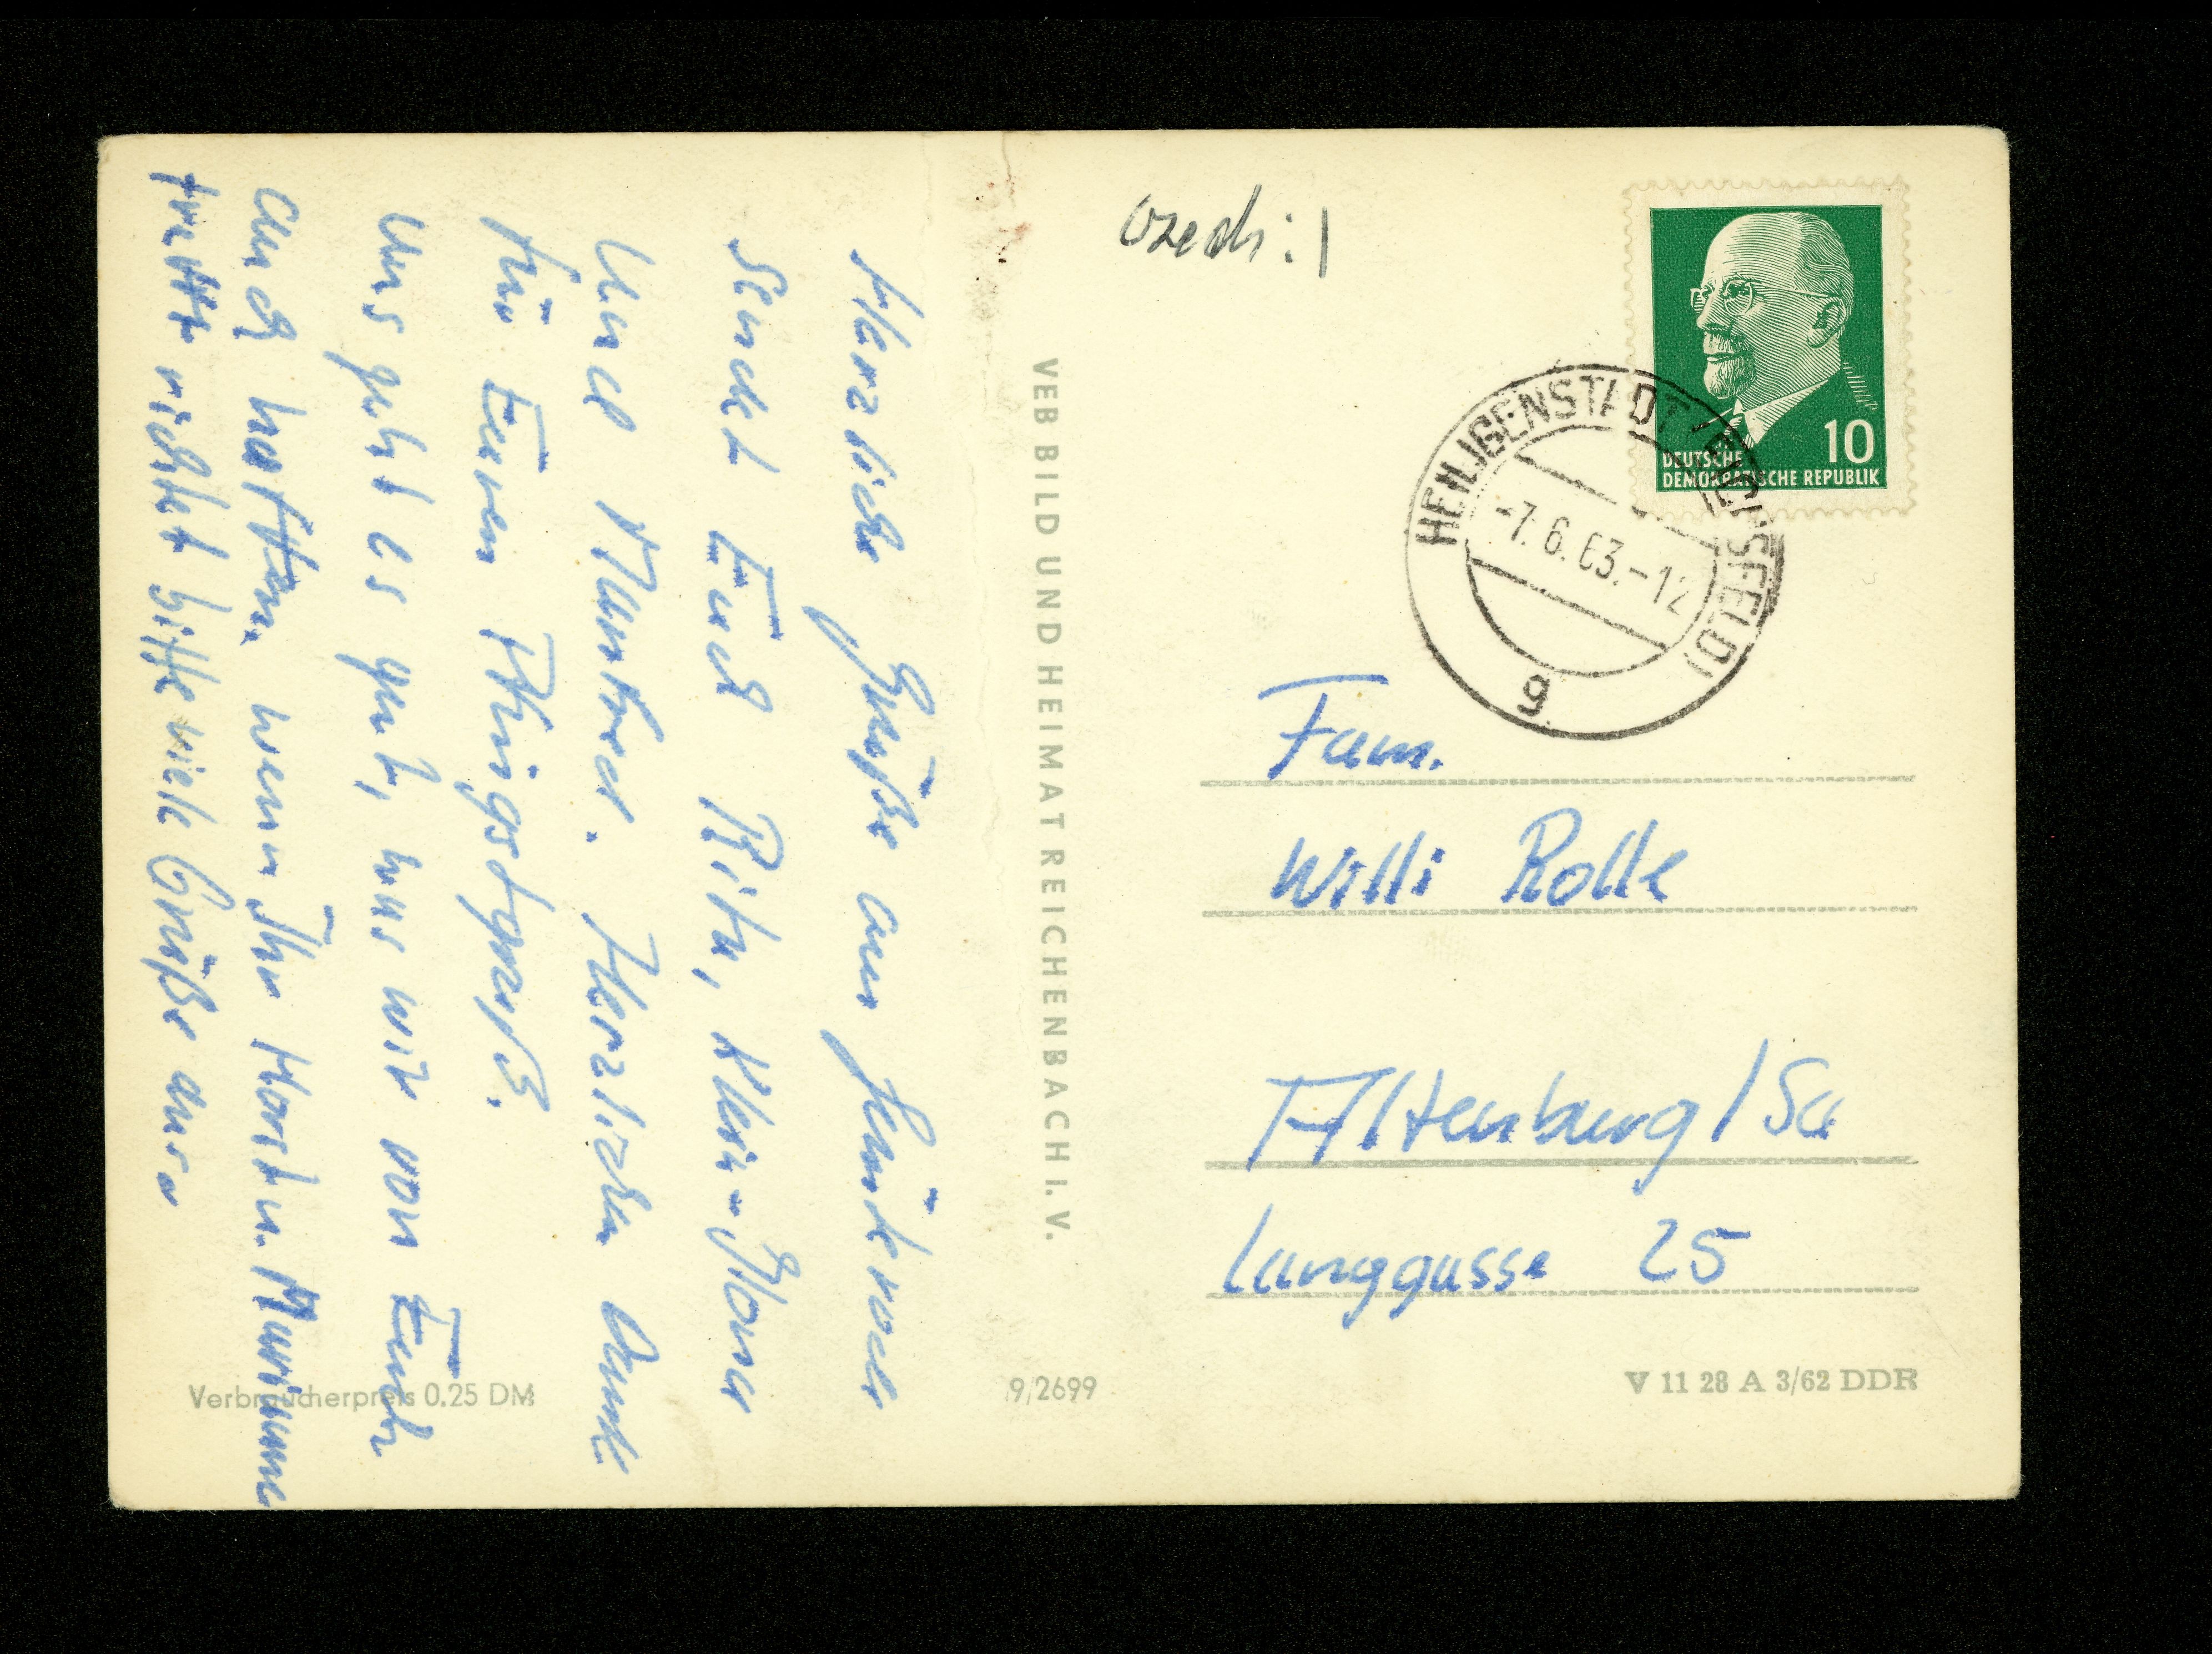 Herzliche Grüße aus
sendet Euch Rita, Klein-Ilona
und Manfred. Herzlichen Dank
für Euren Pfingstgruß.
Uns geht es gut, was wir von Euch
auch hofften, wenn Ihr
richtet bitte viele Grüße aus.
VEB BILD UND HEIMAT REICHENBACH I. V.
Verbraucherpreis 0.25 DM
9/2699
DEUTSCHE
DEMOKRATISCHE REPUBLIK
10
HEILIGENSTADT (EICHSFELD)
-7. 6. 63.-12
g
Fam.
Willi Rolle
Altenburg / Sa
Langgasse 25
V 11 28 A 3/62 DDR